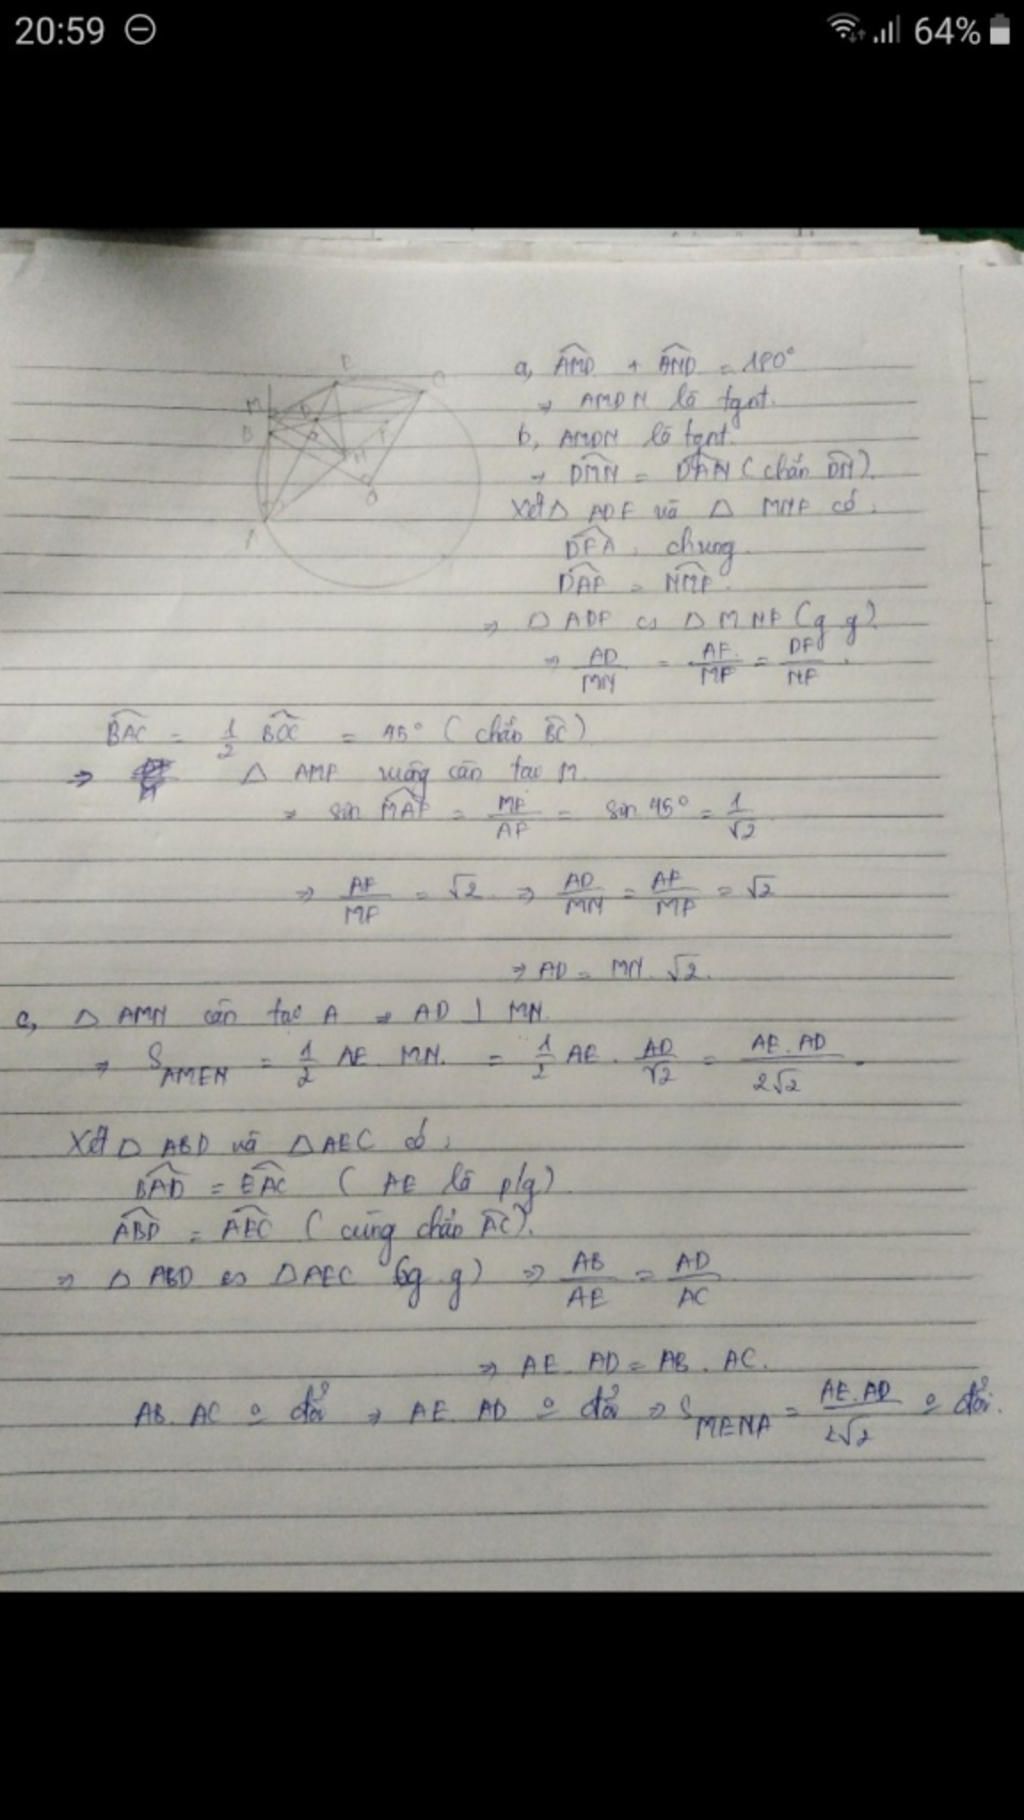 20:59 64%
a, AMD + AND = 180°
⇒ AMDN là tgnt.
b, AMDN là tgnt.
⇒ DMN = DAN (chắn DN).
Xét △ ADF và △ MNF có:
DFA: chung
DAF = NMF
⇒ △ ADF ∽ △ MNF (g.g)
⇒ AD/MN = AF/MF = DF/NF.
BAC = 1/2 BOC = 45° (chắn BC)
⇒ △ AMF vuông cân tại M
⇒ sin MAF = MF/AF = sin 45° = 1/√2
⇒ AF/MF = √2 ⇒ AD/MN = AF/MF = √2
⇒ AD = MN.√2.
c, △ AMN cân tại A ⇒ AD ⊥ MN
⇒ S AMEN = 1/2 AE. MN. = 1/2 AE. AD/√2 = AE. AD/2√2.
Xét △ ABD và △ AEC có:
BAD = EAC (AE là p/g)
ABD = AEC (cùng chắn AC).
⇒ △ ABD ∽ △ AEC (g.g) ⇒ AB/AE = AD/AC
⇒ AE. AD = AB. AC.
AB. AC o đổi ⇒ AE. AD o đổi ⇒ S MENA = AE.AD/2√2 o đổi.